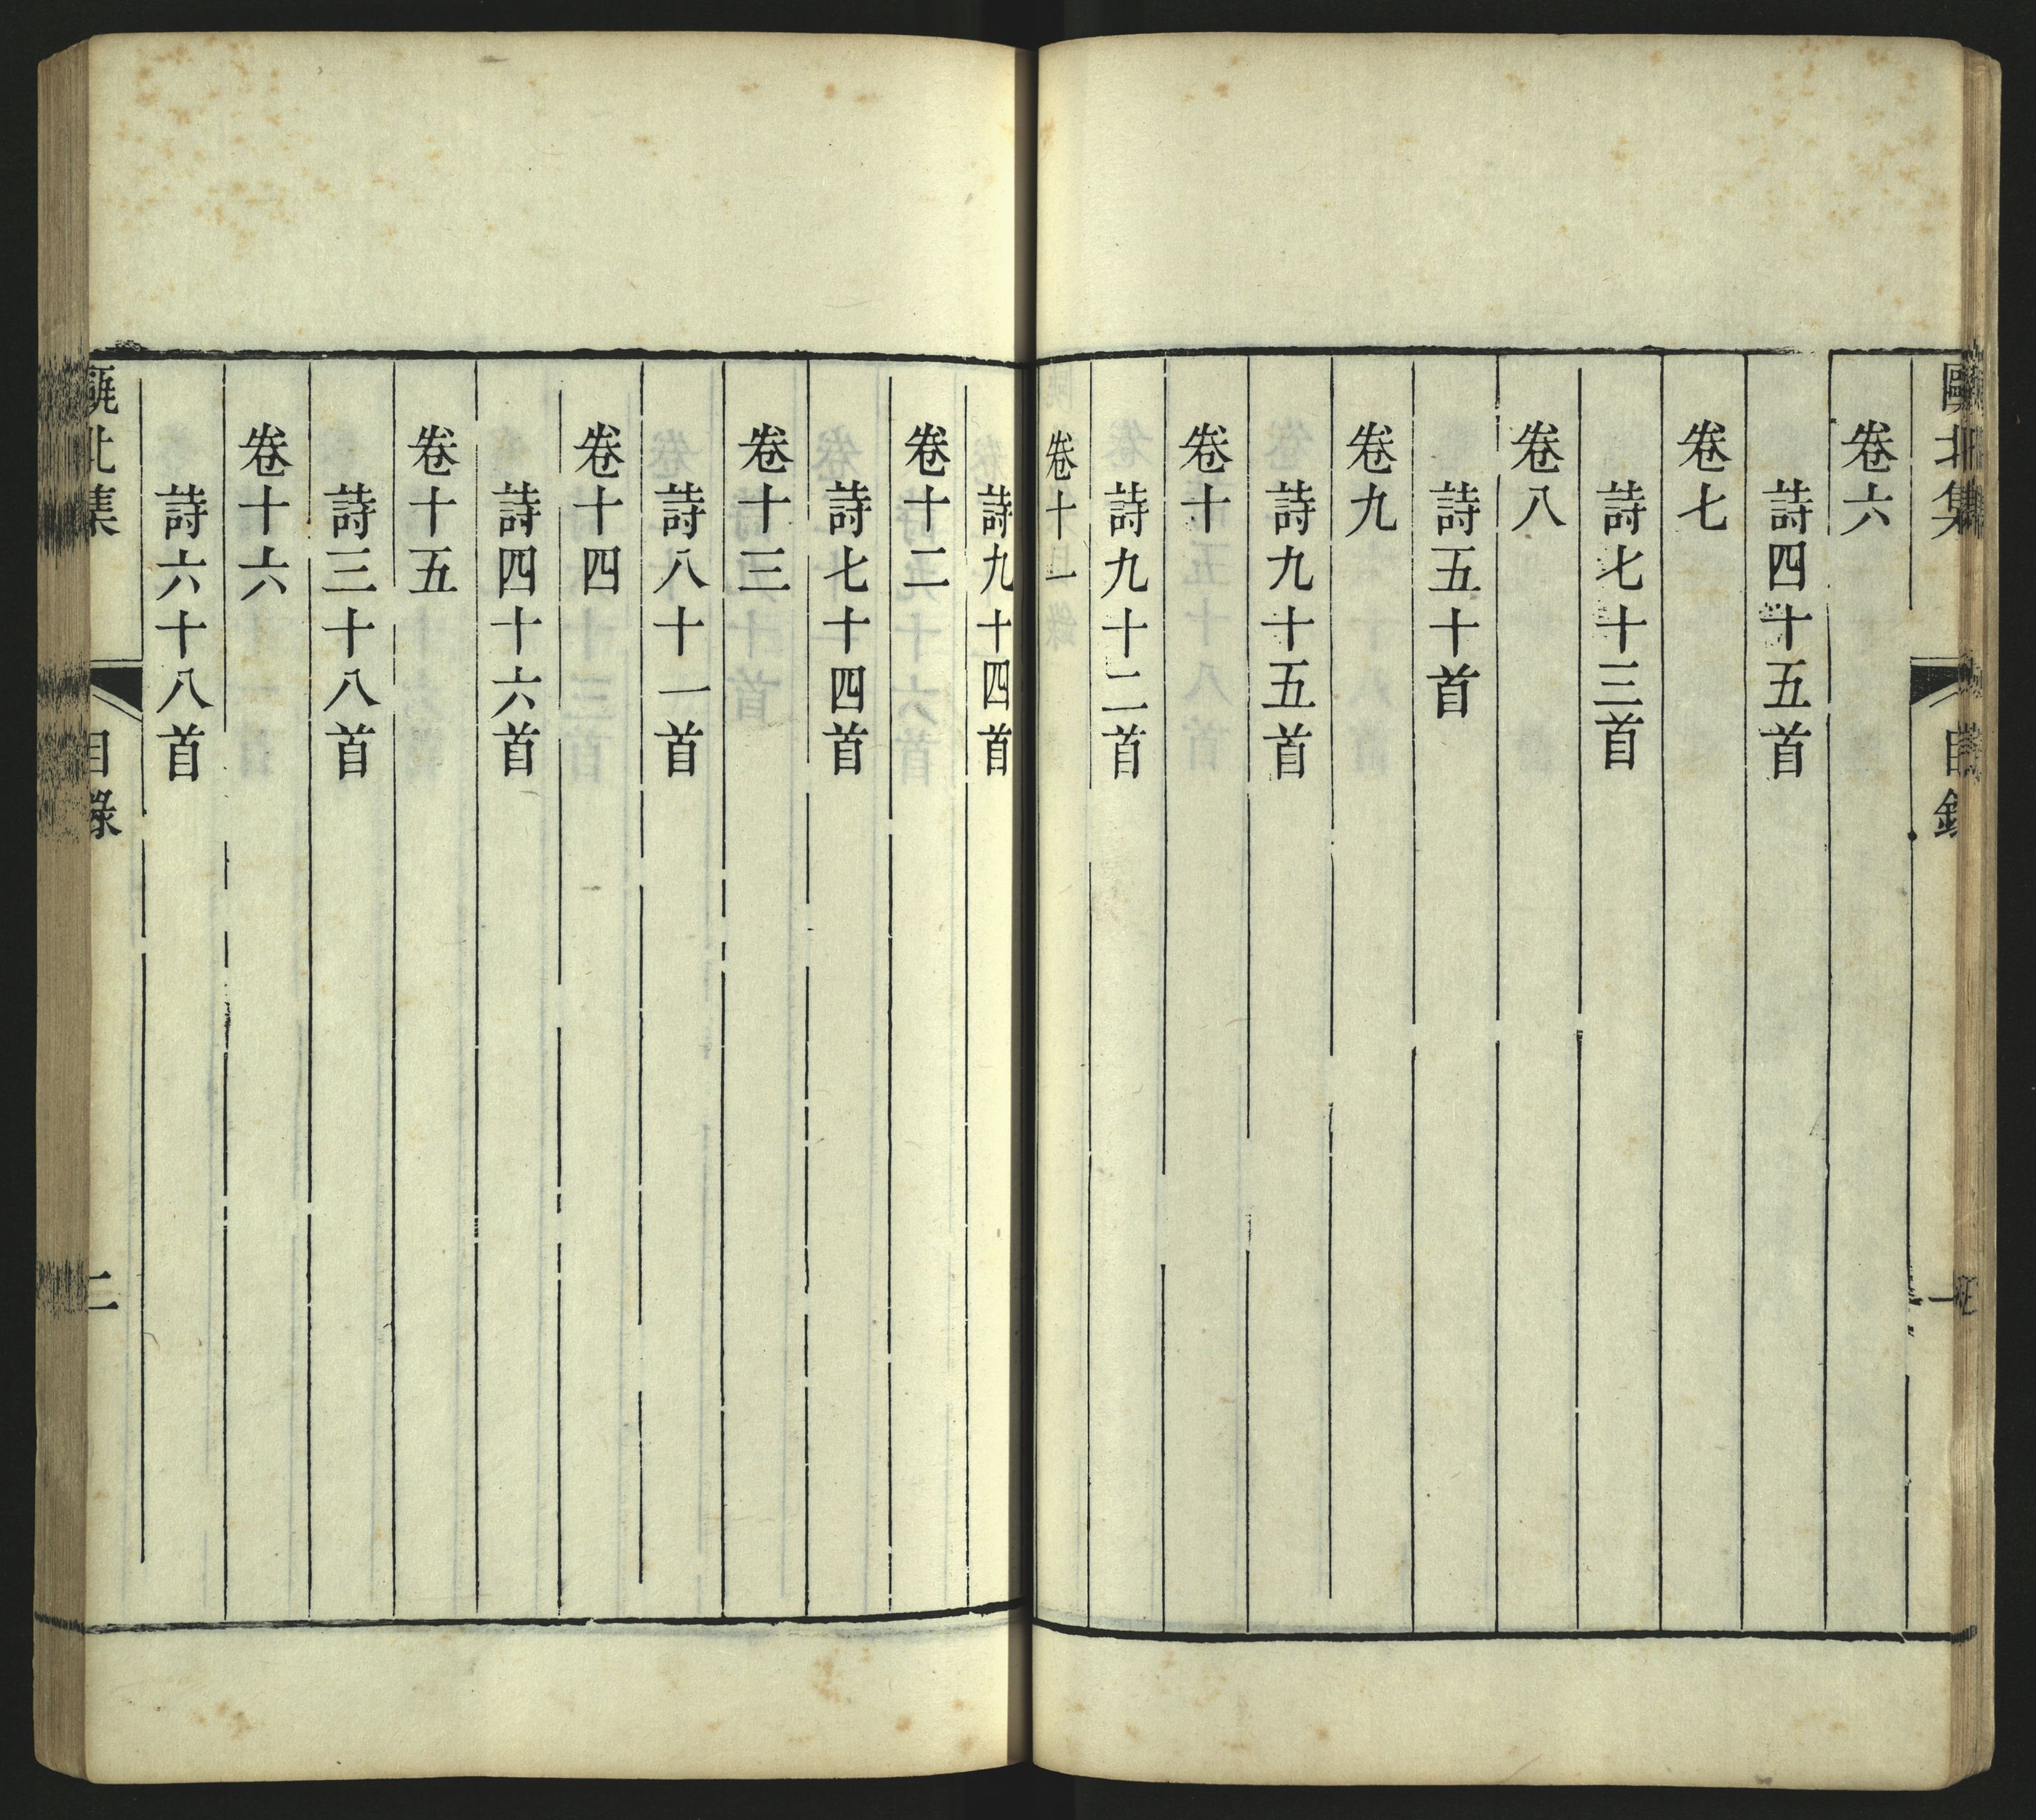 甌北集 目錄 一
卷六
詩四十五首
卷七
詩七十三首
卷八
詩五十首
卷九
詩九十五首
卷十
詩九十二首
卷十一
詩九十四首
卷十二
詩七十四首
卷十三
詩八十一首
卷十四
詩四十六首
卷十五
詩三十八首
卷十六
詩六十八首
甌北集 目錄 二